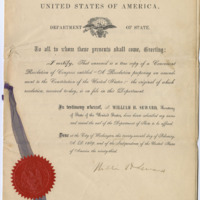 UNITED STATES OF AMERICA.
DEPARTMENT OF STATE.
To all to whom these presents shall come, Greeting:
I certify, That annexed is a true copy of a Concurrent
Resolution of Congress entitled "A Resolution proposing an amend-
ment to the Constitution of the United States" the original of which
resolution, received to-day, is on file in this Department
In testimony whereof, I, WILLIAM H. SEWARD, Secretary
of State of the United States, have hereunto subscribed my name
and caused the seal of the Department of State to be affixed.
Done at the City of Washington, this
day of February,
A. D. and of the Independence of the United States
of America the